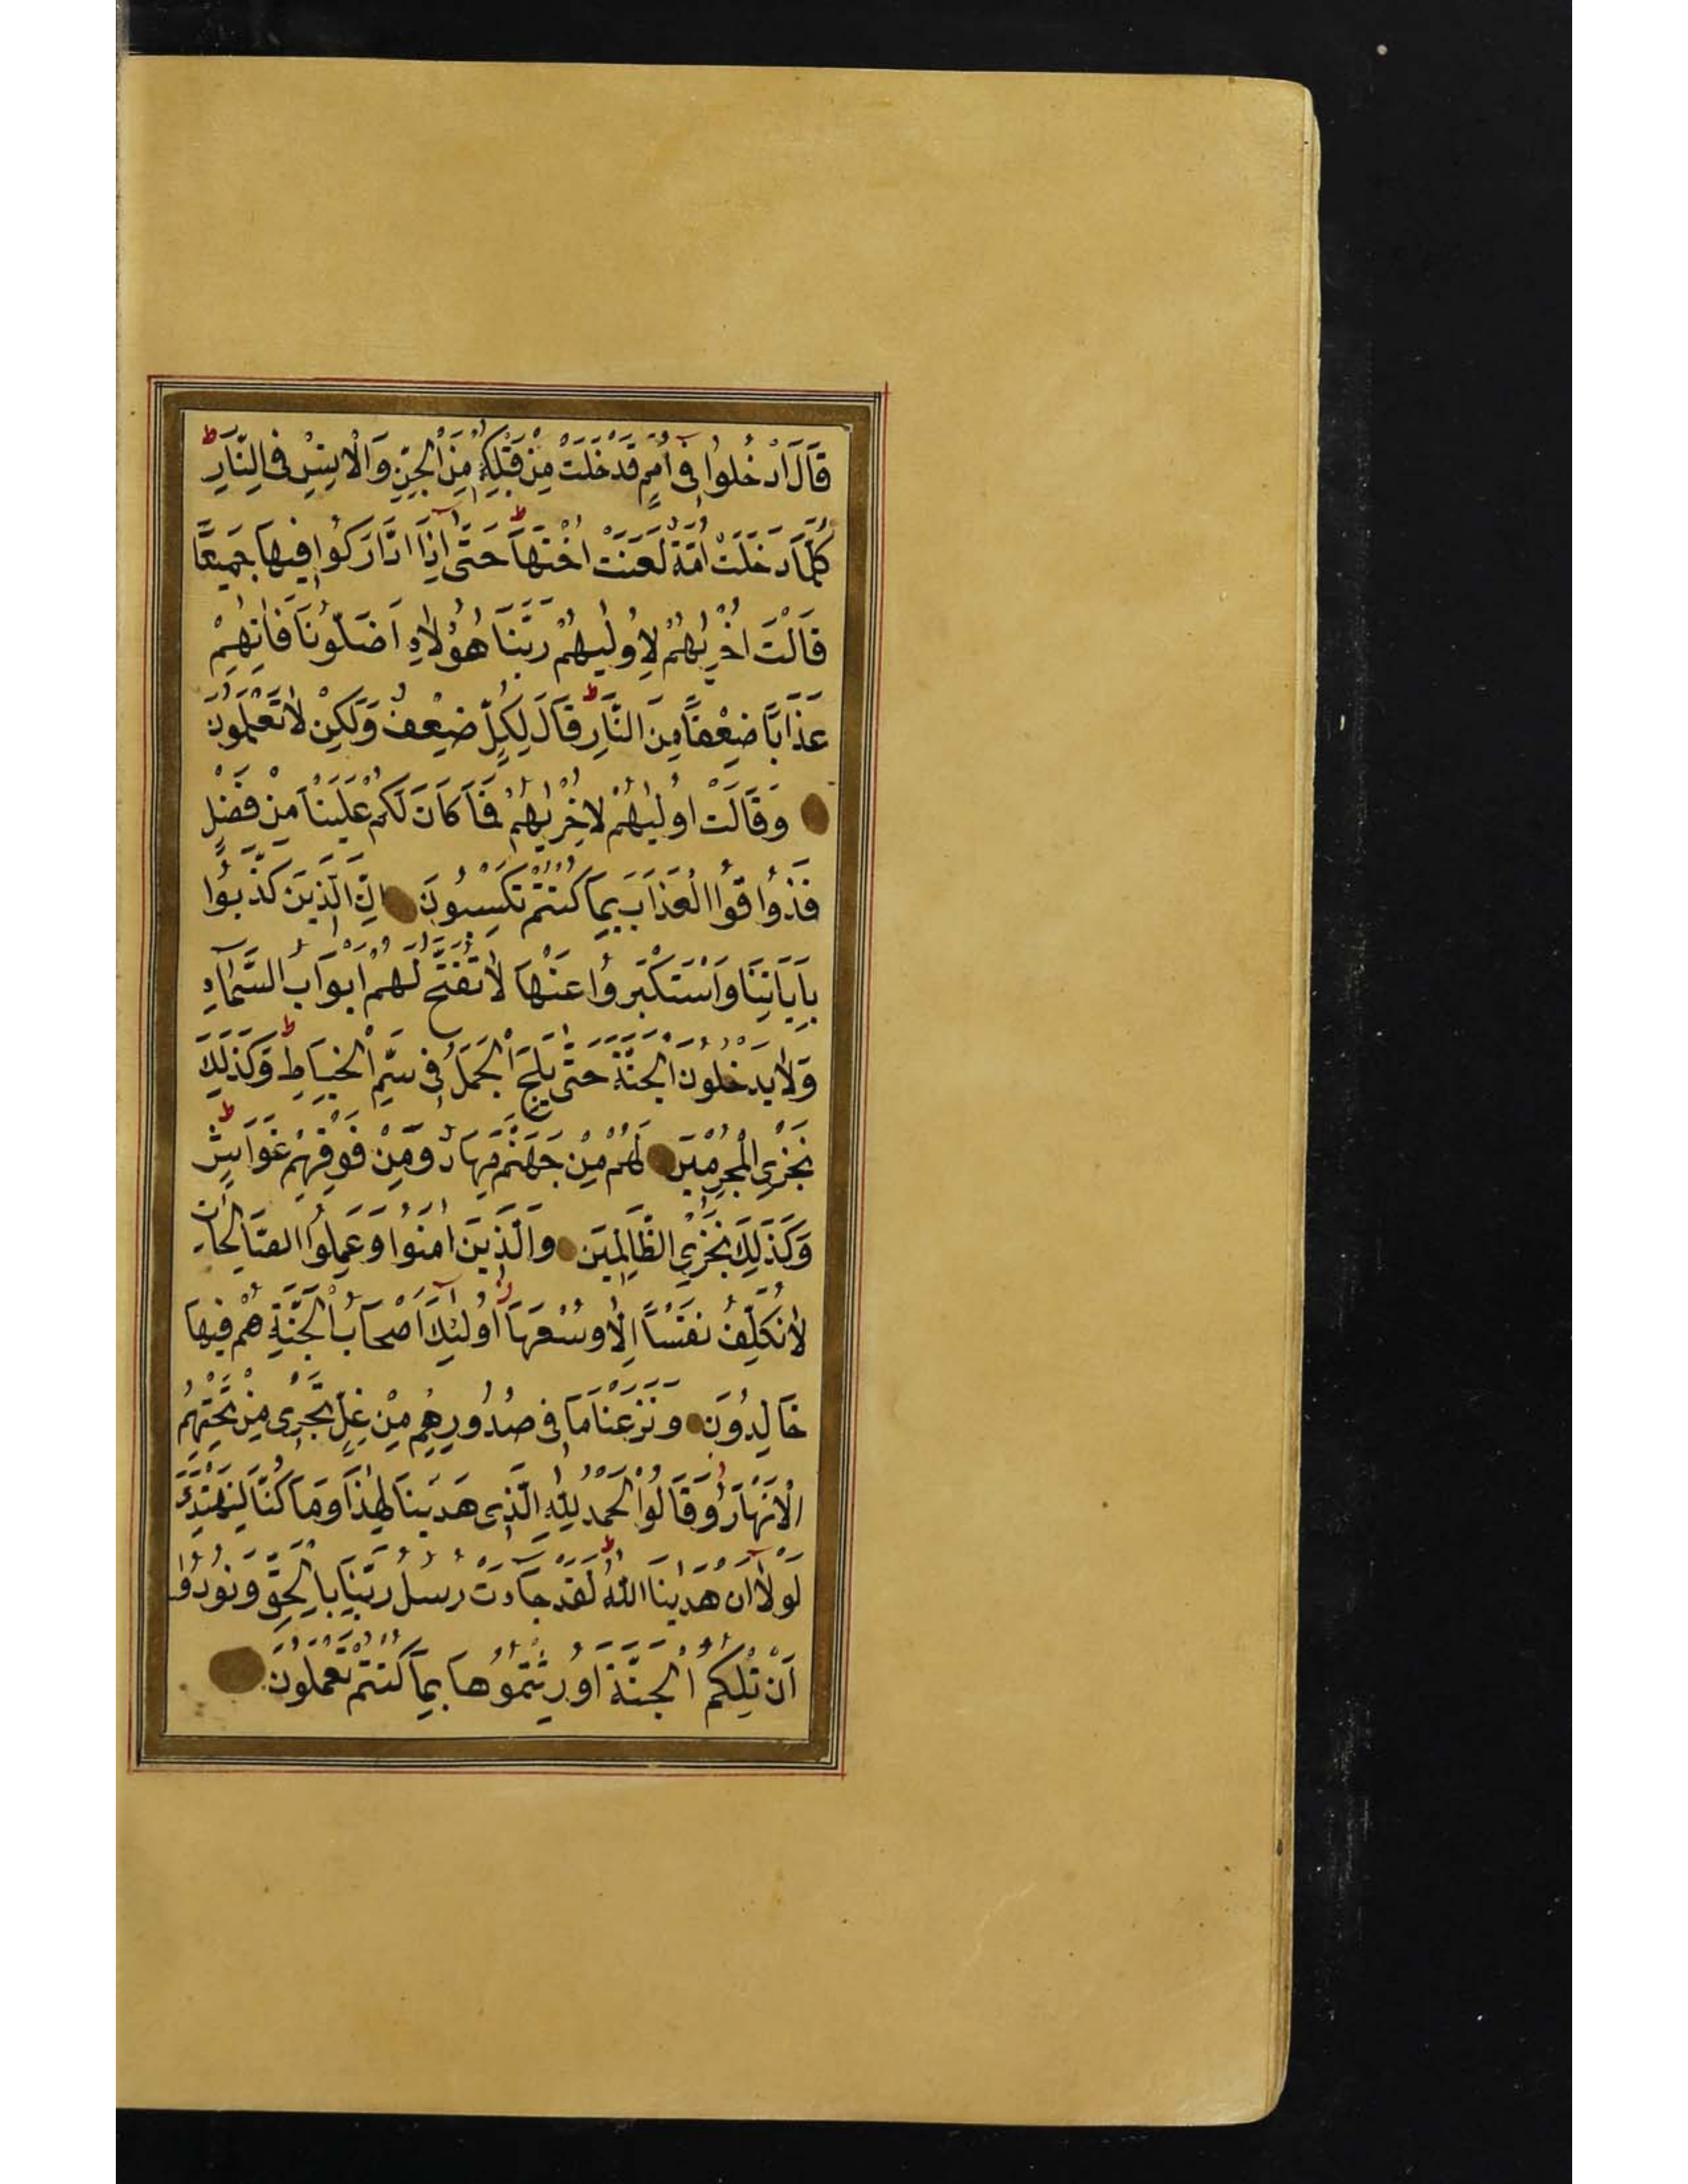 قَالَ ادْخُلُوا فِى أُمَمٍ قَدْ خَلَتْ مِنْ قَبْلِكُمْ مِنَ الْجِنِّ وَالْاِنْسِ فِى النَّارِ ط
كُلَّمَا دَخَلَتْ أُمَّةٌ لَعَنَتْ اُخْتَهَا ط حَتَّى اِذَا ادَّارَكُوا فِيهَا جَمِيعًا
قَالَتْ اُخْرٰيهُمْ لِاُولٰيهُمْ رَبَّنَا هٰؤُلَاءِ اَضَلُّونَا فَاٰتِهِمْ
عَذَابًا ضِعْفًا مِنَ النَّارِ ط قَالَ لِكُلٍّ ضِعْفٌ وَلَكِنْ لَا تَعْلَمُونَ
وَقَالَتْ اُولٰيهُمْ لِاُخْرٰيهُمْ فَمَا كَانَ لَكُمْ عَلَيْنَا مِنْ فَضْلٍ
فَذُوقُوا الْعَذَابَ بِمَا كُنْتُمْ تَكْسِبُونَ اِنَّ الَّذِينَ كَذَّبُوا
بِاٰيَاتِنَا وَاسْتَكْبَرُوا عَنْهَا لَا تُفَتَّحُ لَهُمْ اَبْوَابُ السَّمَاءِ
وَلَا يَدْخُلُونَ الْجَنَّةَ حَتَّى يَلِجَ الْجَمَلُ فِى سَمِّ الْخِيَاطِ ط وَكَذَلِكَ
نَجْزِى الْمُجْرِمِينَ لَهُمْ مِنْ جَهَنَّمَ مِهَادٌ وَمِنْ فَوْقِهِمْ غَوَاشٍ ط
وَكَذَلِكَ نَجْزِى الظَّالِمِينَ وَالَّذِينَ اٰمَنُوا وَعَمِلُوا الصَّالِحَاتِ
لَا نُكَلِّفُ نَفْسًا اِلَّا وُسْعَهَا اُولٰئِكَ اَصْحَابُ الْجَنَّةِ هُمْ فِيهَا
خَالِدُونَ وَنَزَعْنَا مَا فِى صُدُورِهِمْ مِنْ غِلٍّ تَجْرِى مِنْ تَحْتِهِمُ
الْاَنْهَارُ وَقَالُوا الْحَمْدُ لِلّٰهِ الَّذِى هَدٰينَا لِهٰذَا وَمَا كُنَّا لِنَهْتَدِىَ
لَوْلَا اَنْ هَدٰينَا اللّٰهُ ط لَقَدْ جَاءَتْ رُسُلُ رَبِّنَا بِالْحَقِّ وَنُودُوا
اَنْ تِلْكُمُ الْجَنَّةُ اُورِثْتُمُوهَا بِمَا كُنْتُمْ تَعْمَلُونَ